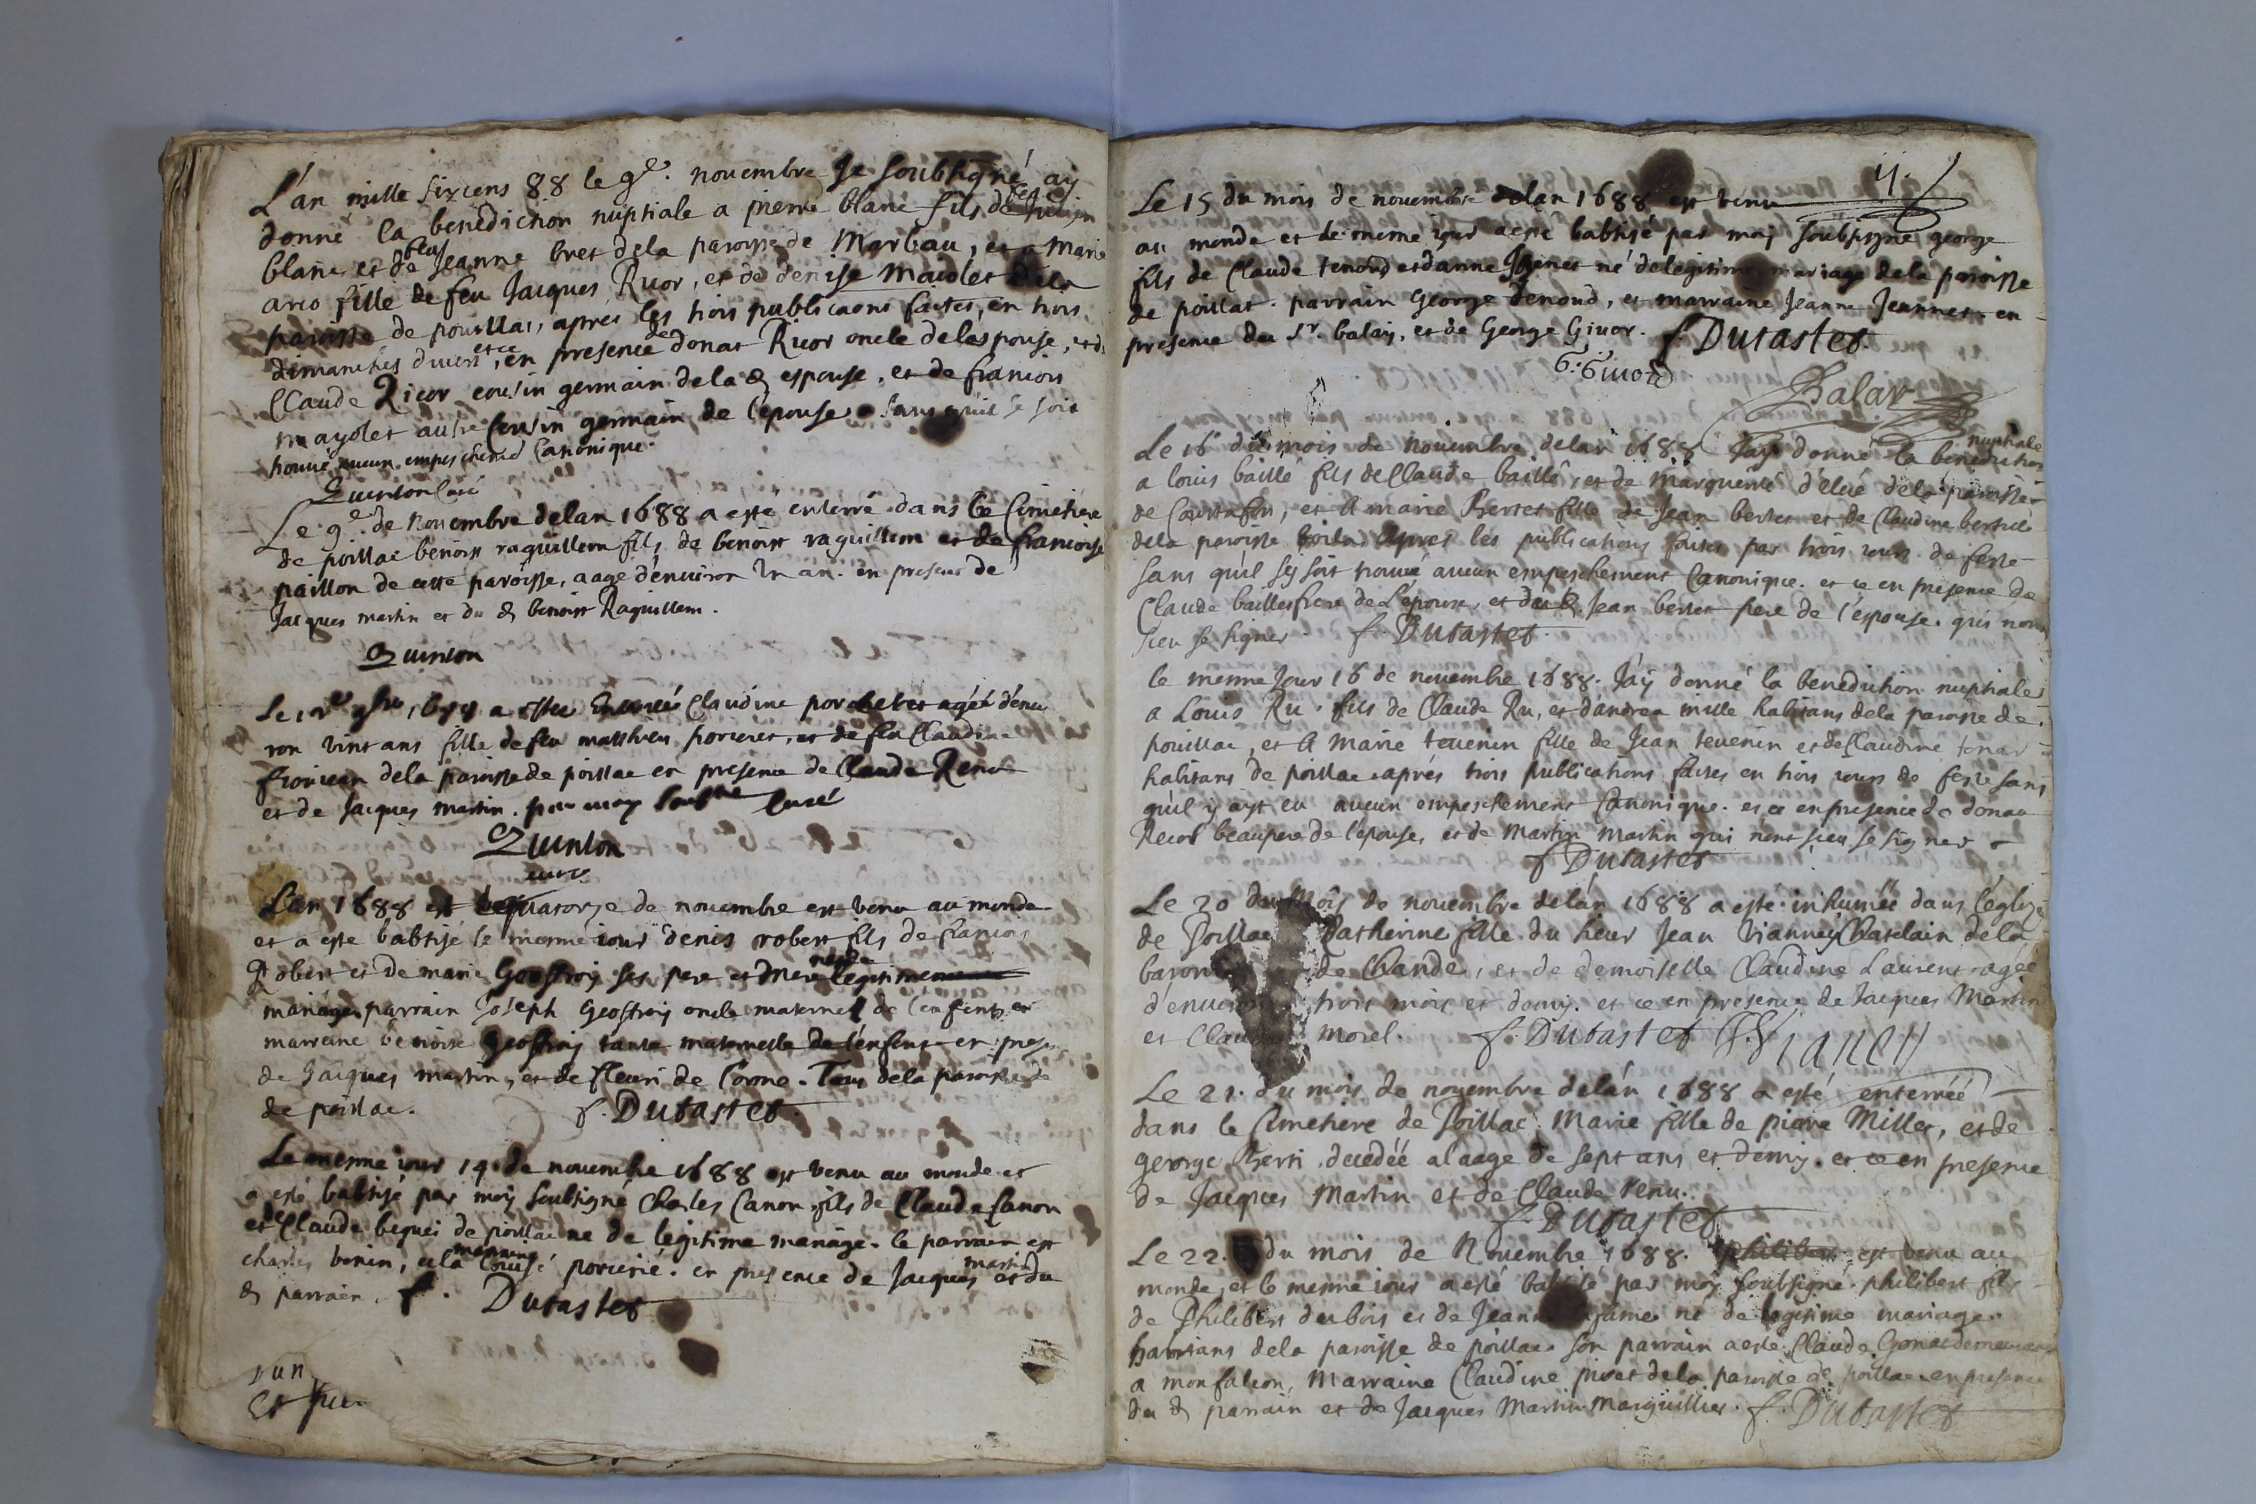 L'an mille sixcens 88 le 9e. novembre Je soubsigné ay
donné la benediction nuptiale a pierre blanc fils de
blanc et de feue Jeanne bret dela paroisse de Marbau, et a Marie
fille de feu Jacques Ricor, et de denise Maiolet dela
paroisse de pouillac, aprés les trois publicaons faites, en trois
dimanches divers, et ce en presence de donat Ricor oncle delespouse, et de
Claude Ricor cousin germain dela d espouse, et de francois
mayolet autre Cousin germain de l'epouse sans quil se soit
trouvé aucun empeschemed Canonique.
Quinson Curé
Le 9e de novembre delan 1688 a esté enterré dans le Cimetiere
de poillac benoist raquillem fils de benoist raquillem et de francoise
paillon de cette paroisse, aage d'environ Un an. en presence de
Jacques martin et du d benoist Raquillem.
Quinson
Le 9bre, a estee Enterrée Claudine porcheret agéé d'envi
ron vint ans fille de feu matthieu porcieret, et de feu Claudine
dela paroisse de poillac en presence de Claude Renu
et de Jacques martin. par moy soubsne Curé
Quinson
curé
L'an 1688 et le quatorze de novembre est venu au monde
et a este babtisé le mesme iour denis robert fils de francois
Robert et de marie Geoffroy ses pere et mere né de legitime
mariage parrain Joseph Geoffroy oncle maternel de l'enfent et
marraine benoite geoffroy tante maternelle de l'enfent en pres
de Jacques martin, et de fleuri de Corme. Tous dela paroisse de
de poillac. f. Dutastet.
Le mesme iour 14. de novembre 1688 est venu au monde et
a esté babtisé par moy soubsigné Charles Canon fils de Claude Canon
et Claude beguei de poillac né de legitime mariage. le parrain est
charles benin, et la marraine Louise porcerié. en presence de Jacques martin et du
d parrain. f. Dutastet
11.
Le 15 du mois de novembre delan 1688 est venu
au monde et le meme iour a esté babtisé par moy soubsigné george
fils de Claude tenoud et danne né delegitime mariage dela paroisse
de poillat. parrain George denoud, et marraine Jeanne Jeannet en
presence du Sr. balay, et de George Givor. f. Dutastet.
G. Givord
Balay
Le 16 du mois de novembre delan 1688 Jay donné la benediction nuptiale
a louis baillé fils de Claude baillé, et de marguerite dela paroisse
de, et A marie Bertet fille de Jean bertet et de Claudine
dela paroisse Apres les publications faites par trois iours de feste
sans quil sy soit trouvé aucun empeschement Canonique. et ce en presence de
Claude baillet frere de L'epoux, et du d. Jean bertet pere de l'espouse. qui nont
sceu se signer. f. Dutastet.
le mesme Jour 16 de novembre 1688. J'ay donné la benediction nuptiale
a Louis Ru. fils de Claude Ru, et dandrea mille habitans dela paroisse de
pouillac, et A marie tevenin fille de Jean tevenin et de Claudine
habitans de poillac aprés trois publications faites en trois iours de feste sans
quil y ayt eu aucun empeschement Canonique. et ce en presence de donat
Ricor beaupere de l'epouse, et de martin martin qui nont sceu se signer
f Dutastet
Le 20 du Mois de novembre delán 1688 a esté inhumée dans l'eglise
de Poillac Catherine fille du sieur Jean Vianney Chatelain dela
baron de Chandé, et de demoiselle Claudine Laurent agée
d'environ trois mois et demy. et ce en presence de Jacques Martin
et Claude morel. f. Dutastet Vianey
Le 21. du mois de novembre delán 1688 a esté enterréé
dans le Cimetiere de Poillac Marie fille de piere Millet, et de
george Berri decedéé alaage de sept ans et demy. et ce en presence
de Jacques martin et de Claude renu.
f. Dutastet
Le 22. du mois de Novembre 1688. philibert est venu au
monde, et le mesme iour a esté babtisé par moy soubsigné philibert fils
de Philibert dubois et de Jeanne né de legitime mariage
habitans dela paroisse de poillac son parrain a esté Claude
a monfalcon, Marraine Claudine pivet dela paroisse de poillac en presence
du d parrain et de Jacques Martin Marguillier. f. Dutastet